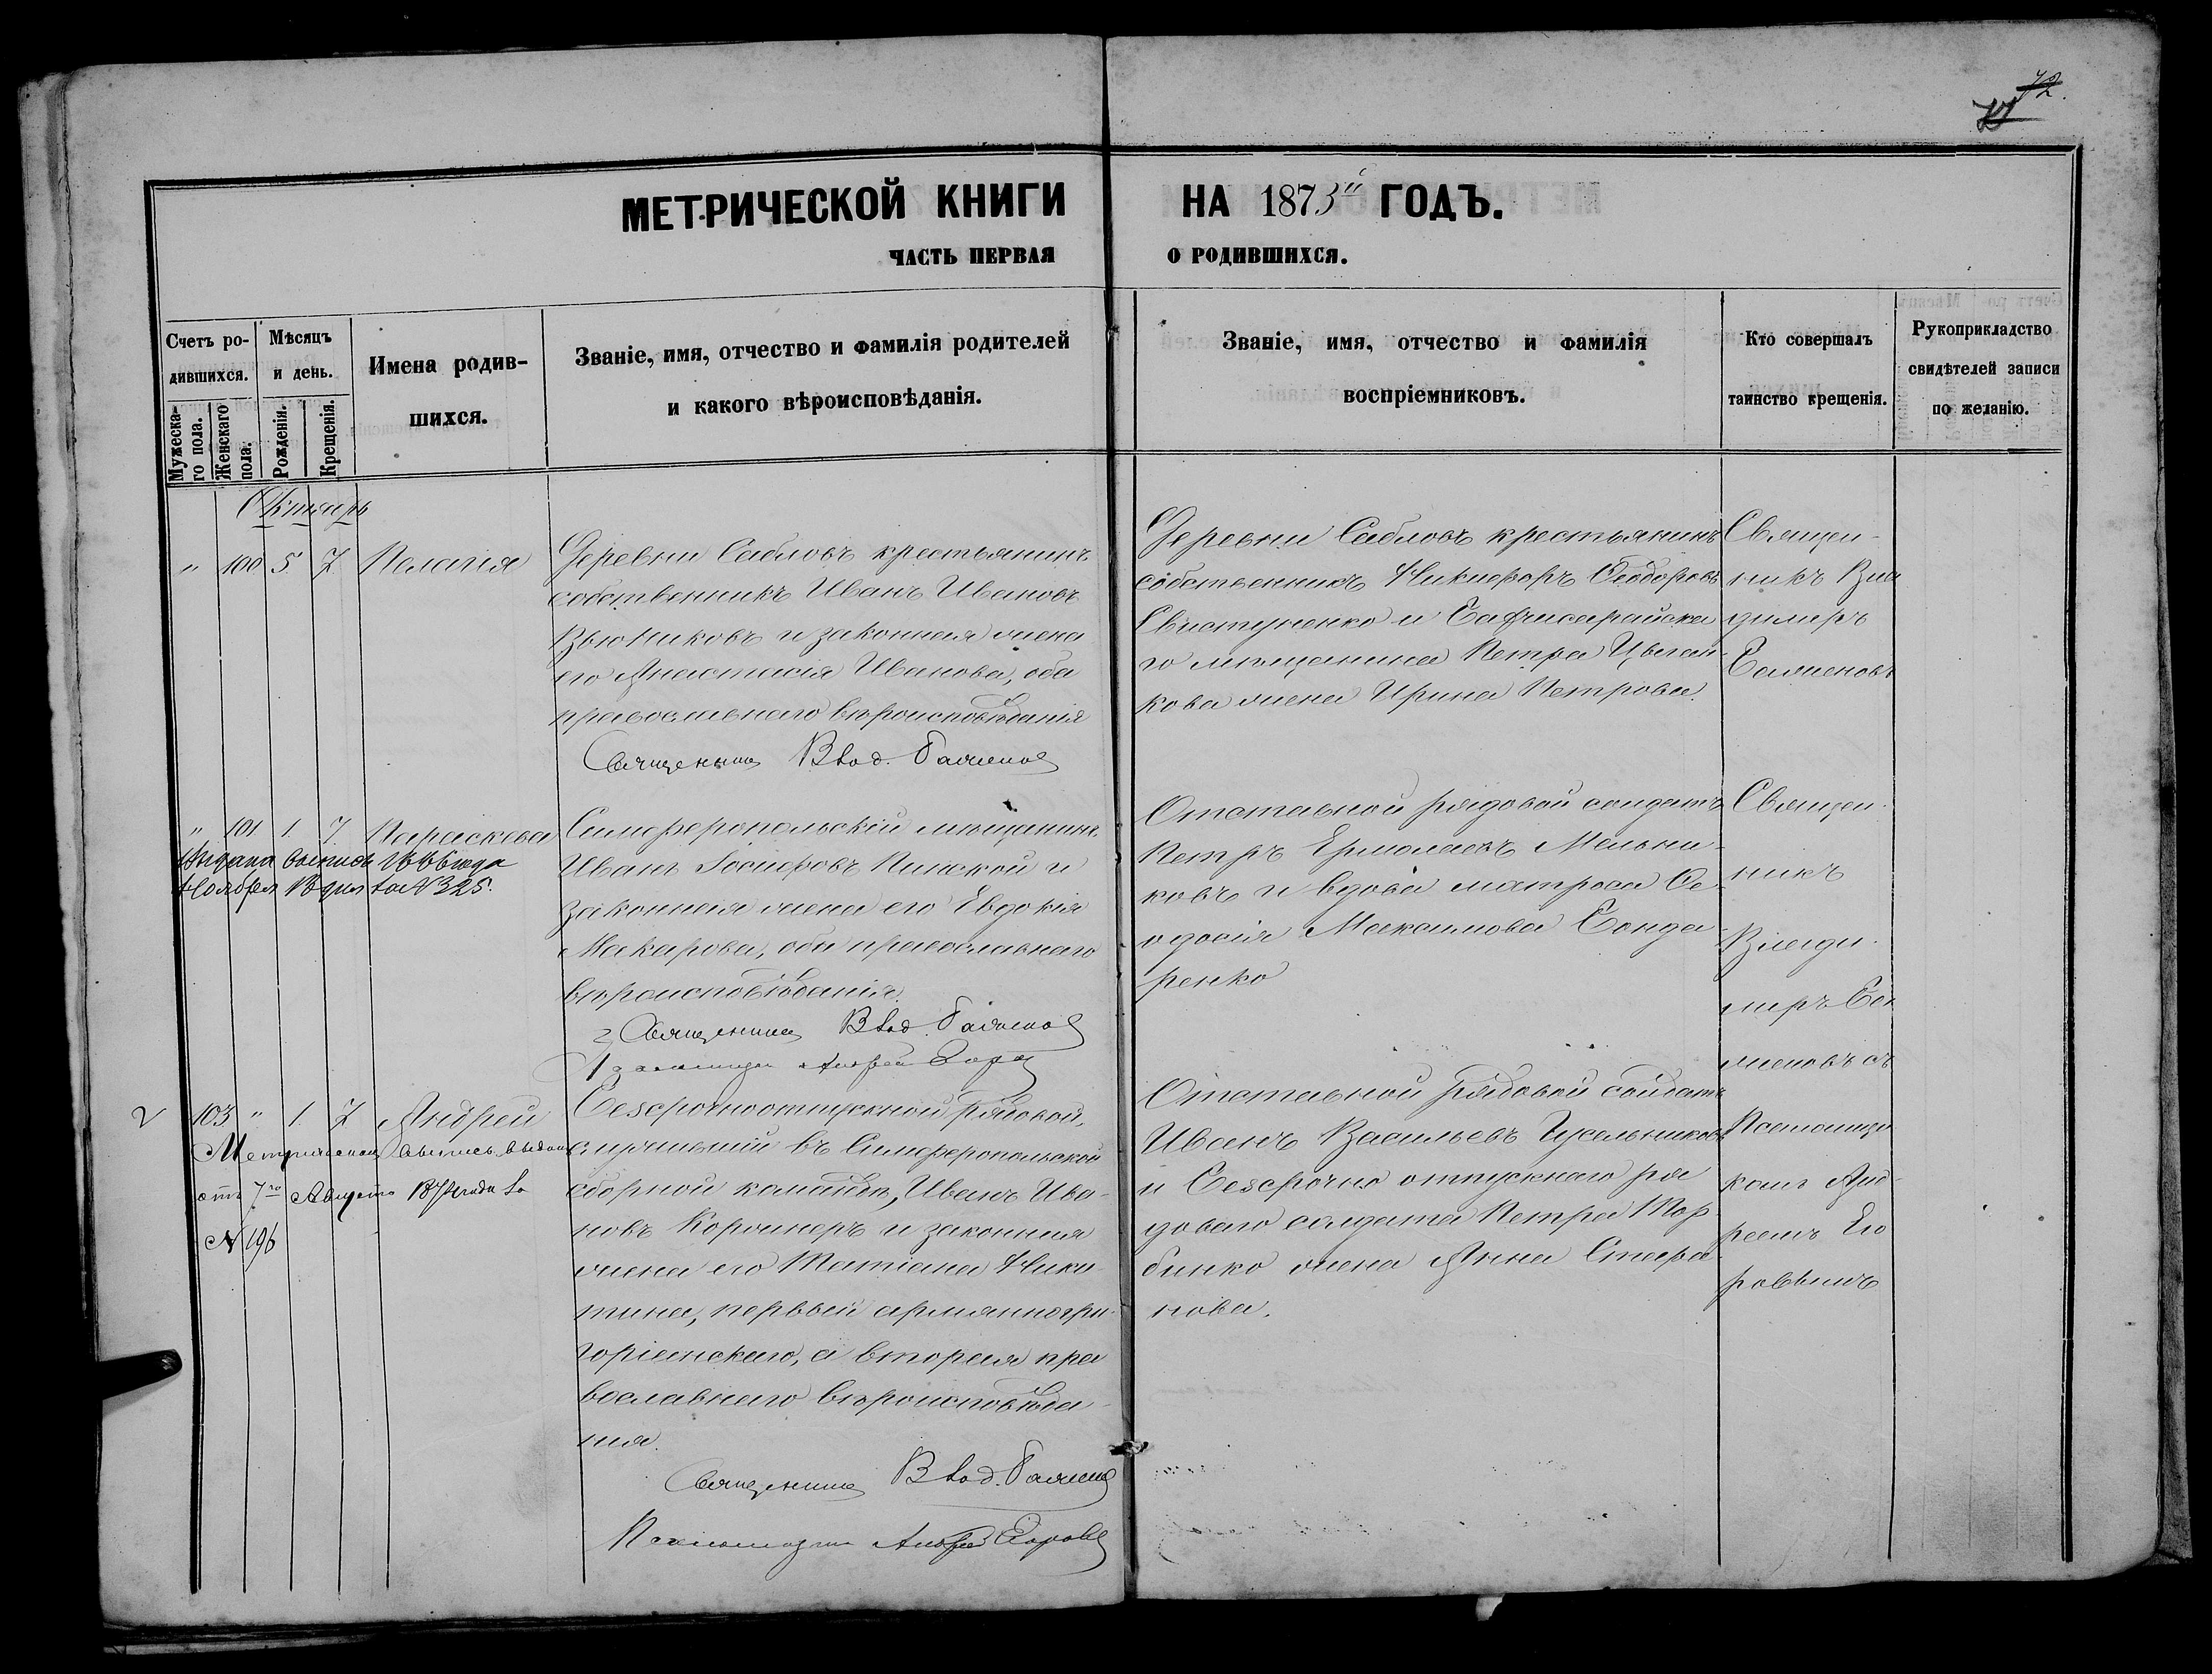 72.
МЕТРИЧЕСКОЙ КНИГИ НА 1873й ГОДЪ.
ЧАСТЬ ПЕРВАЯ О РОДИВШИХСЯ.
Счетъ ро-
дившихся.
Мужеска-
го пола.
Женскаго
пола.
Мѣсяцъ
и день.
Рожденія.
Крещенія.
Имена родив-
шихся.
Званіе, имя, отчество и фамилія родителей
и какого вѣроисповѣданія.
Званіе, имя, отчество и фамилія
воспріемниковъ.
Кто совершалъ
таинство крещенія.
Рукоприкладство
свидѣтелей записи
по желанію.
Октябрь
" 100 5. 7. Пелагія
Деревни Сабловъ крестьянинъ
собственникъ Иванъ Ивановъ
и законная жена
его Анастасія Иванова, оба
православнаго вѣроисповѣданія
Священникъ Влад. Баженовъ
Деревни Сабловъ крестьянинъ
собственникъ Никифоръ Ѳеодоровъ
Свистуненко и Бахчисарайска
го мѣщанина Петра Цыган-
кова жена Ирина Петрова.
Священ-
никъ Вла
димиръ
Баженовъ
" 101 1. 7. Параскева
Выдана выпись
Ноября за № 325.
Симферопольскій мѣщанинъ
Иванъ Пинской и
законная жена его Евдокія
Макарова, оба православнаго
вѣроисповѣданія.
Священникъ Влад. Баженовъ
Псаломщикъ Андрей
Отставной рядовой солдатъ
Петръ Ермолаевъ Мельни-
ковъ и вдова матроса Ѳе-
одосія Максимова Бонда-
ренко
Священ-
никъ
Влади-
миръ Ба
женовъ съ
Псаломщи
комъ Анд-
реемъ Его
ровымъ
103 " 1. 7. Андрей
Метрическая выпись выдана
отъ 7го Августа за
№ 196
Безсрочноотпускной рядовой,
служившій въ Симферопольской
сборной командѣ, Иванъ Ива-
новъ и законная
жена его Татіана Ники-
тина, первый армянногри-
горіанскаго, а вторая пра
вославнаго вѣроисповѣда-
нія.
Священникъ Влад. Баженовъ
Псаломщикъ Андрей Егоровъ
Отставной рядовой солдатъ
Иванъ Васильевъ Гусельниковъ
и Безсрочно отпускнаго ря
доваго солдата Петра Тор
бинко жена Анна Стефа
нова.